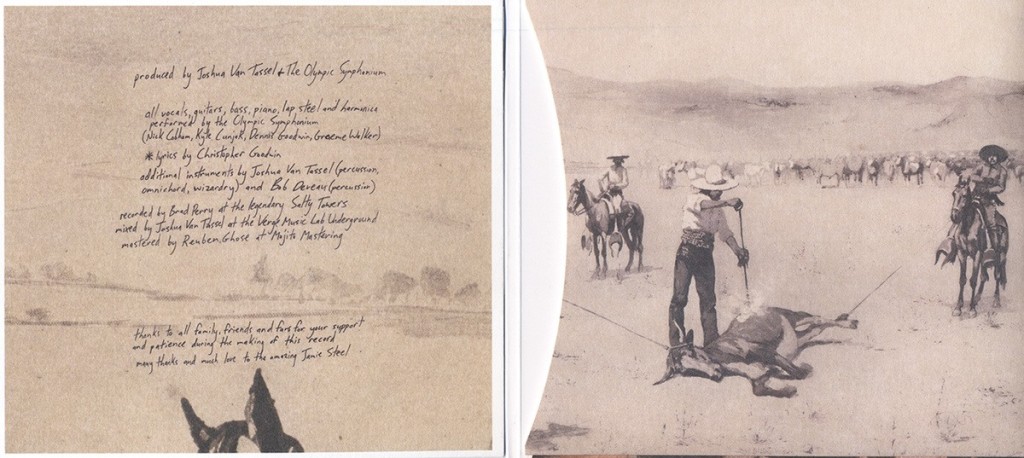 produced by Joshua Van Tassel & The Olympic Symphonium
all vocals, guitars, bass, piano, lap steel and harmonica
performed by the Olympic Symphonium
(Nick Cobham, Kyle Cunjak, Dennis Goodwin, Graeme Walker)
*lyrics by Christopher Goodwin
additional instruments by Joshua Van Tassel (percussion,
omnichord, wizardry) and Bob Deveau (percussion)
recorded by Brad Perry at the legendary Salty Towers
mixed by Joshua Van Tassel at the Verge Music Lab Underground
mastered by Reuben Ghose at Mojito Mastering
thanks to all family, friends and fans for your support
and patience during the making of this record
many thanks and much love to the amazing Jamie Steel